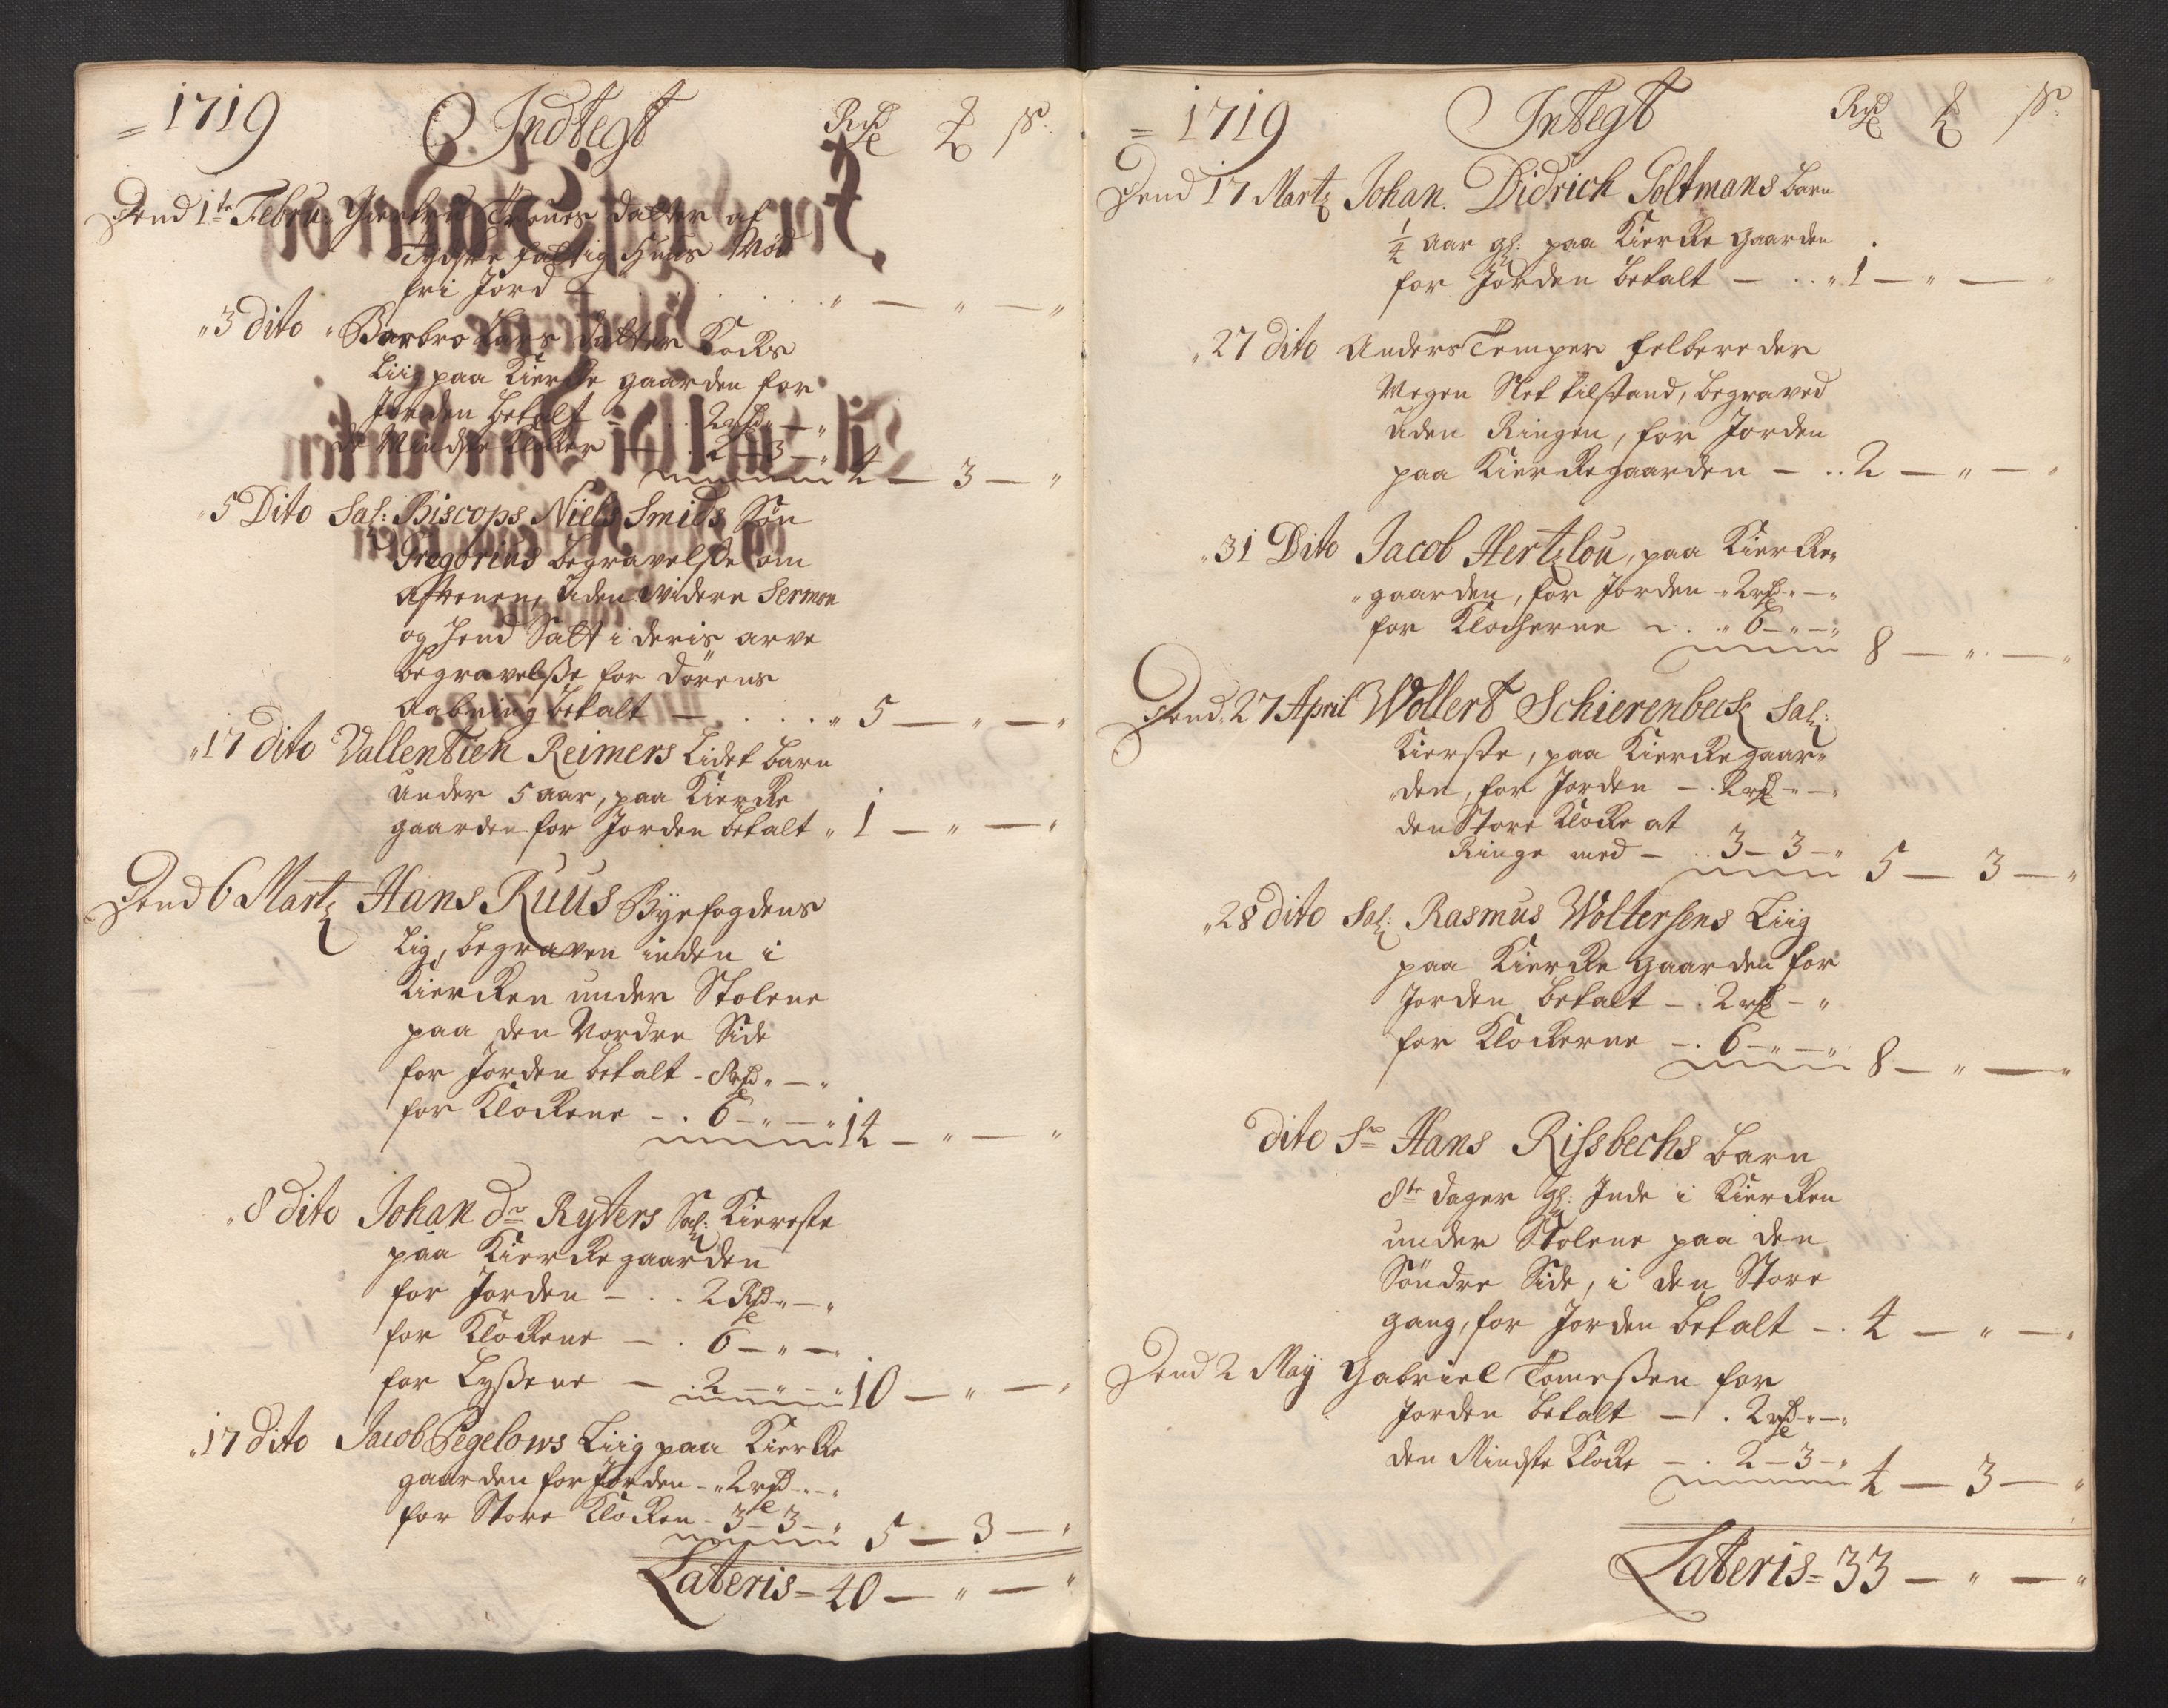 = 1719 Indtegt Rdl ℳ ß
Dend 1te Febru: Trones datter af
Tydske fattig Huus Mød
fri Jord — . . . . . „ — „ — „
„3 dito „Barbro Lars datter Kocks
Liig paa Kiercke gaarden for
Jorden betalt — . . 2 rdl „ — „
de Mindste Klocker — . 2 — 3 — „ 4 — 3 — „
„5 Dito Sal: Biscops Niels Smids Søn
Gregorius begravelsse om
afftenen, uden widere Sermon
og hend Satt i deris arve
begravelsse for dørens
aabning betalt — . . . . „ 5 — „ — „
„17 dito Vallentien Reimers Lidet barn
under 5 aar, paa Kiercke
gaarden for Jorden betalt „ 1 — „ — „
Dend 6 Martz Hans Ruus Byefogdens
Lig, begraven inden i
Kiercken under Stolene
paa den Nordre Side
for Jorden betalt - 8 rdl „ — „
for Klockene — . 6 — „ — „ 14 — „ — „
„8 dito Johan dr Ryters Sal: Kiereste
paa Kierckegaarden
for Jorden — . . 2 Rdl „ — „
for Klockene — . 6 — „ — „
for Lyßene — . 2 — „ — „ 10 — „ — „
„17 dito Jacob Pegelows Liig paa Kiercke
gaarden for Jorden - „ 2 rdl — „
for Store Klocken - 3 — 3 — „ 5 — 3 — „
Lateris = 40 — „ — „
= 1719 Integt Rdl ℳ ß
Dend 17 Martz Johan. Didrich Goltmans barn
1/4 aar gl: paa Kiercke gaarden
for Jorden betalt — . . „ 1 — „ — „
„27 dito Anders Temper felbereder
Wegen Slet tilstand, begraved
uden Ringen, for Jorden
paa Kierckegaarden — . . 2 — „ — „
„31 Dito Jacob Hertzlou, paa Kiercke„
„gaarden, for Jorden - 2 rdl „ — „
for Klockerne — . . „ 6 — „ — „ 8 — „ — „
Dend 27 April Wollert Schierenbeck Sal:
Kierste, paa Kierckegaar„
„den, for Jorden — . 2 rdl - „ — „
den Store Klocke at
Ringe med — . . 3 — 3 — „ 5 — 3 — „
„28 dito Sal: Rasmus Woltersens Liig
paa Kiercke gaarden for
Jorden betalt — . 2 rdl — „
for Klockerne — . 6 — „ — „ 8 — „ — „
dito Sr Hans Rissbechs barn
8te dager gl: Inde i Kiercken
under Stolene paa den
Söndre Side, i den Store
gang, for Jorden betalt — . 4 — „ — „
Dend 2 May Gabriel Tomeßen for
Jorden betalt — . 2 rdl - „ — „
den Mindste Klocke — . 2 — 3 — „ 4 — 3 — „
Lateris = 33 — „ — „